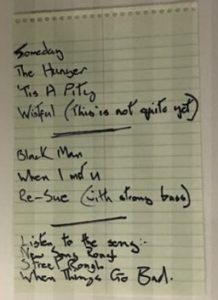 Someday
The Hunger
'Tis A Pity
Wistful (This is not quite yet)
Black Man
When I met U
Re-Sue (with strong bass)
Listen to the song:-
New Song Rough
Street Rough
When Things Go Bad.